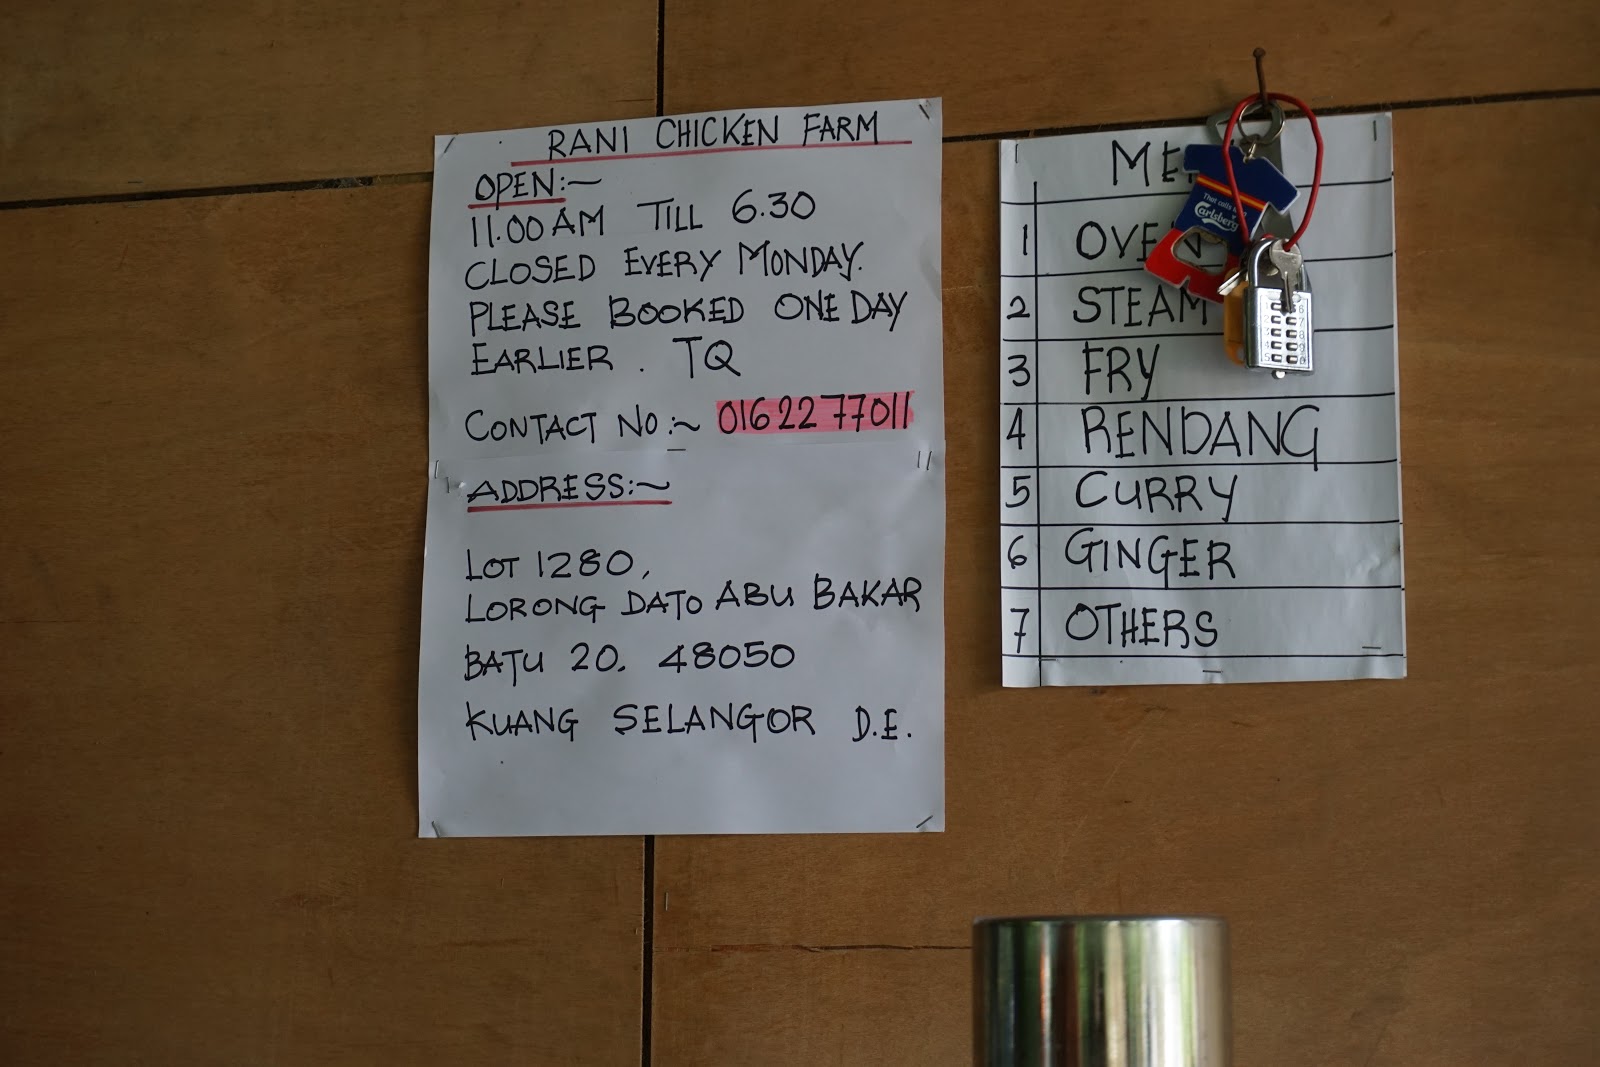 RANI CHICKEN FARM
OPEN:~
11.00 AM TILL 6.30
CLOSED EVERY MONDAY.
PLEASE BOOKED ONE DAY
EARLIER. TQ
CONTACT NO:~ 0162277011
ADDRESS:~
LOT 1280,
LORONG DATO ABU BAKAR
BATU 20. 48050
KUANG SELANGOR D.E.
1 OVEN
2 STEAM
3 FRY
4 RENDANG
5 CURRY
6 GINGER
7 OTHERS
Carlsberg